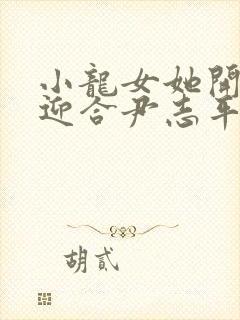 小龍女她開
迎合尹志平
胡貳